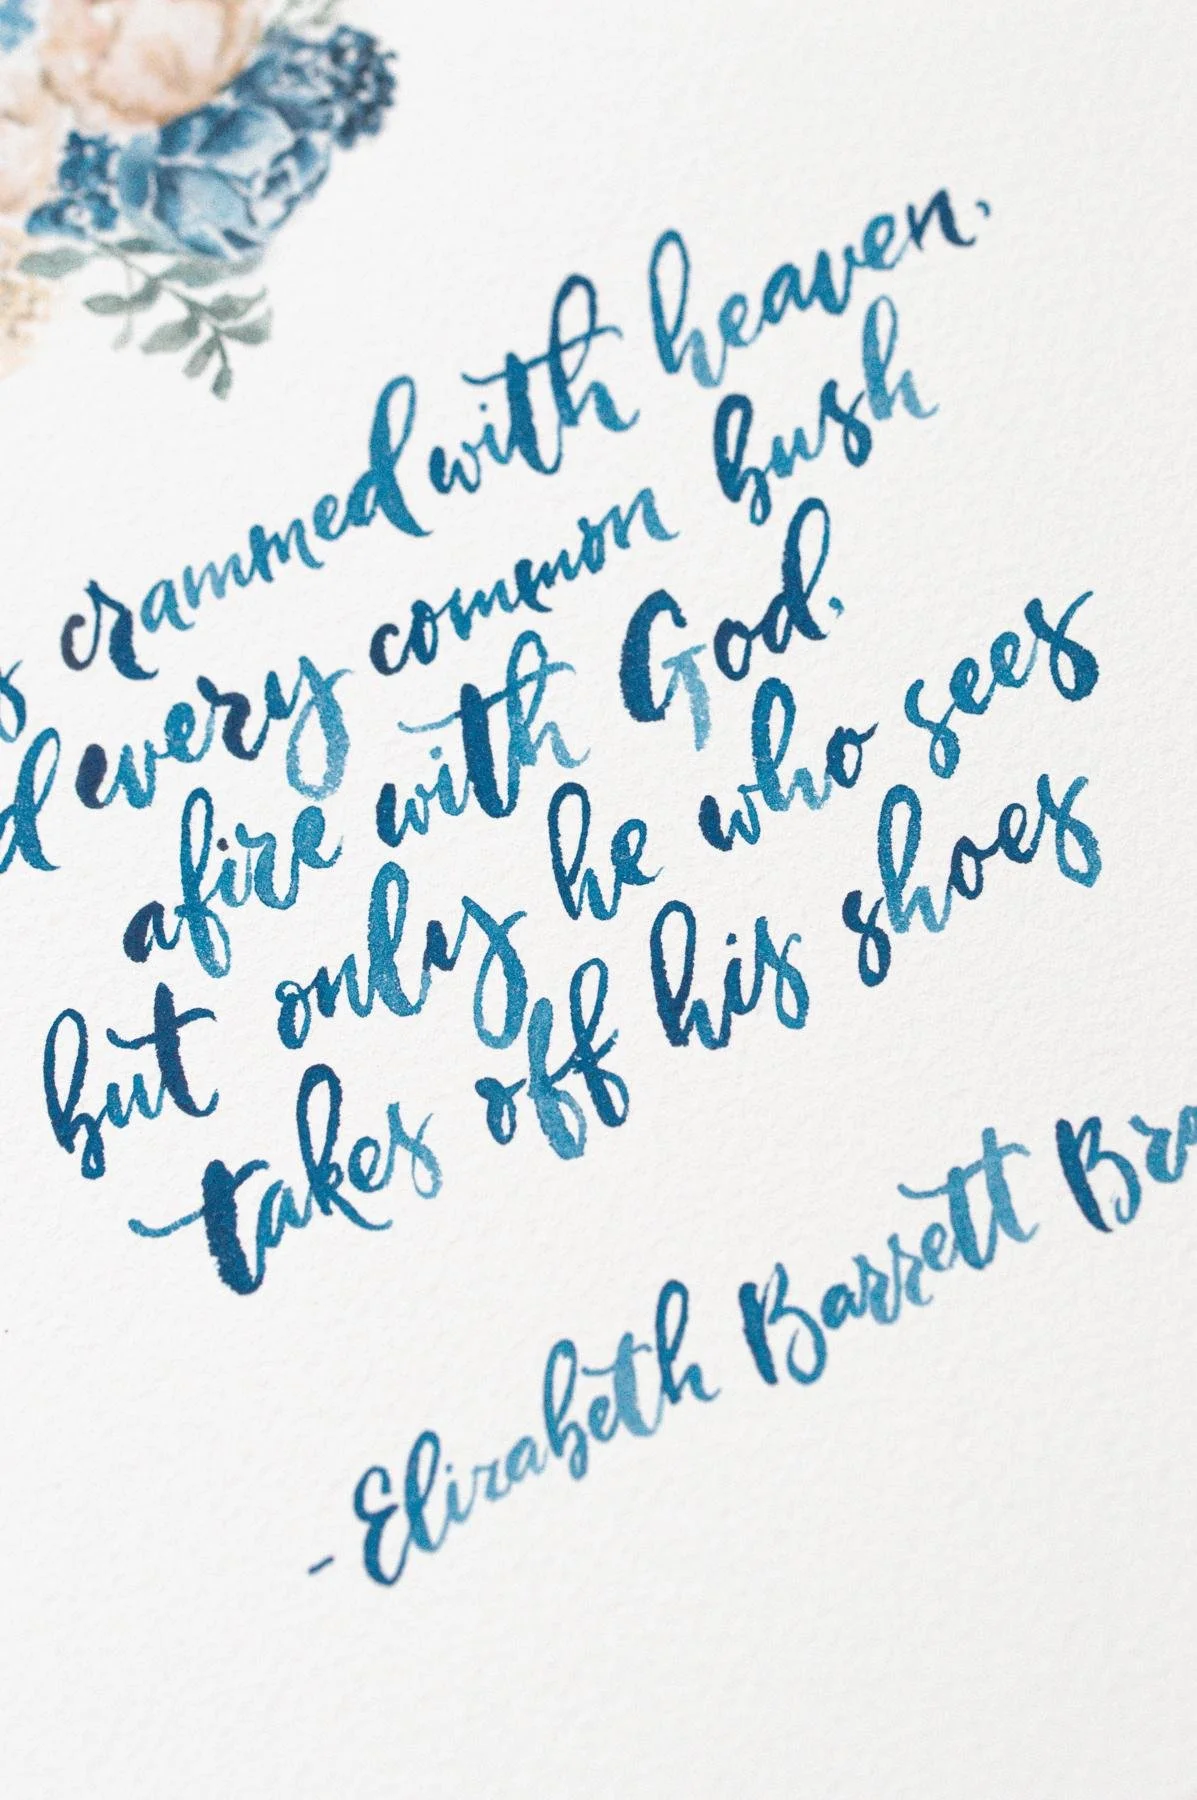 s crammed with heaven,
d every common bush
afire with God,
but only he who sees
takes off his shoes
- Elizabeth Barrett Bro